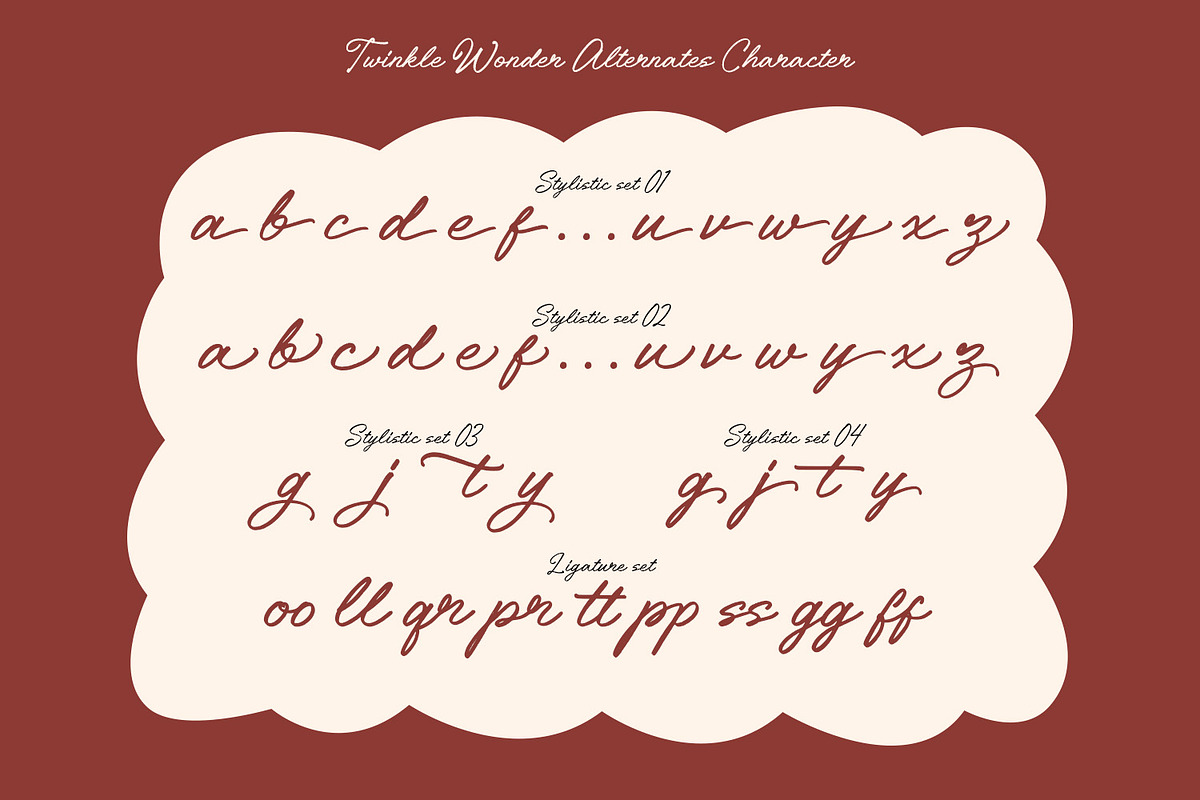 Twinkle Wonder Alternates Character
Stylistic set 01
a b c d e f . . . u v w y x z
Stylistic set 02
a b c d e f . . . u v w y x z
Stylistic set 03
g j t y
Stylistic set 04
g j t y
Ligature set
oo ll qr pr tt pp ss gg ff